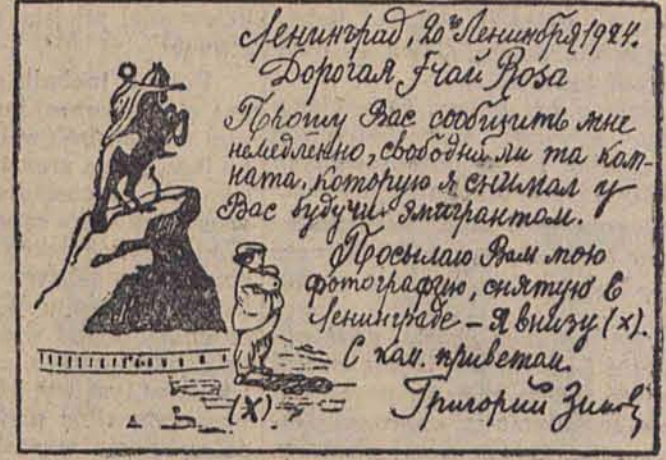 Ленинград, 20го Ленинбря 1924.
Дорогая Frau Rosa
Прошу Вас сообщить мне
немедленно, свободна ли та ком-
ната, которую я снимал у
Вас будучи эмигрантом.
Посылаю Вам мою
фотографию, снятую в
Ленинграде – Я внизу (х).
С ком. приветом.
Григорий
(х).